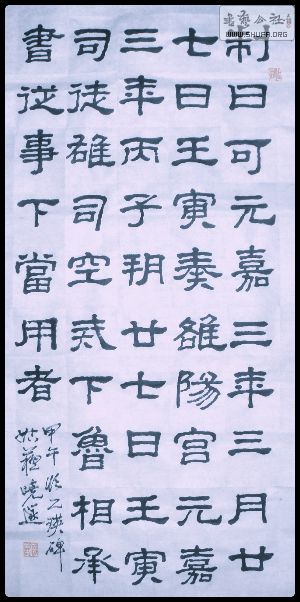 書藝公社
WWW.SHUFA.ORG
制曰可元嘉三年三月廿
七日壬寅奏雒陽宮元嘉
三年丙子朔廿七日壬寅
司徒雄司空戒下魯相承
書從事下當用者
甲午臨乙瑛碑
姑蘇曉